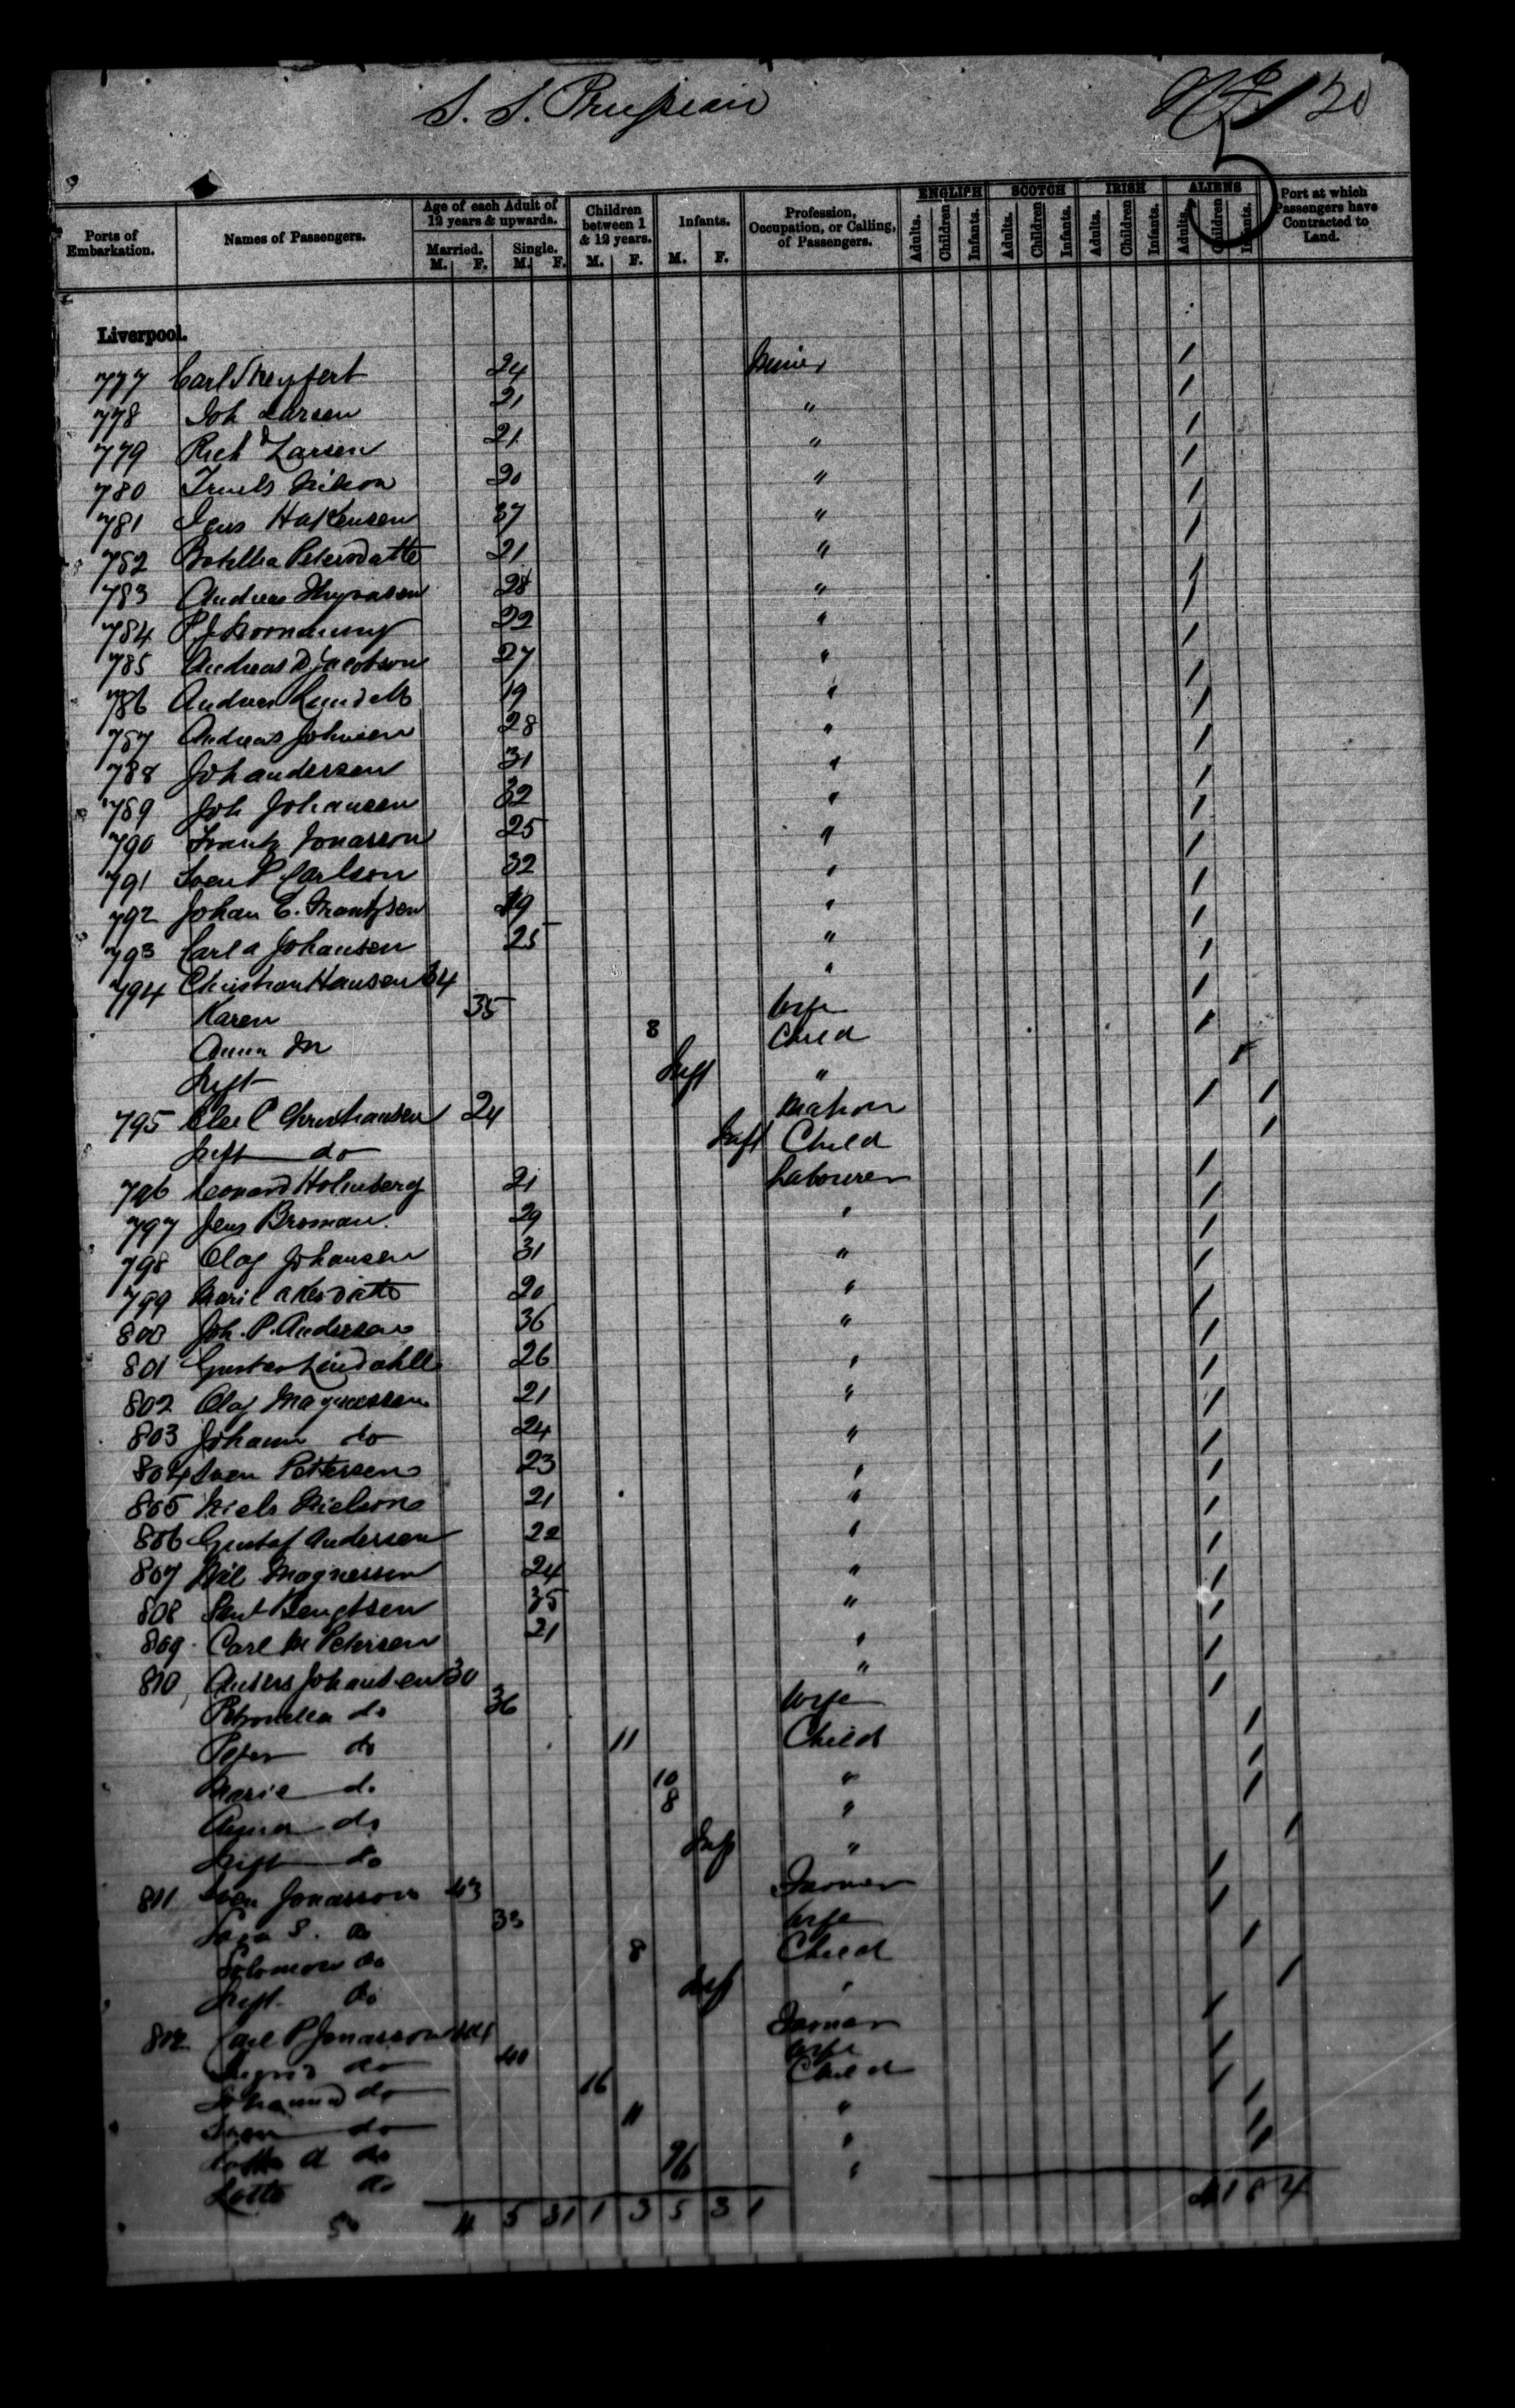 S. S. Prussian
20
5
Ports of Embarkation. Names of Passengers. Age of each Adult of 12 years & upwards. Married. M. F. Single. M. F. Children between 1 & 12 years. M. F. Infants. M. F. Profession, Occupation, or Calling, of Passengers. ENGLISH Adults. Children Infants. SCOTCH Adults. Children Infants. IRISH Adults. Children Infants. ALIENS Adults. Children Infants. Port at which Passengers have Contracted to Land.
Liverpool.
777 Carl 24 Miner 1
778 Joh Larsen 21 " 1
779 Richd Larsen 21 " 1
780 Truels Nilson 20 " 1
781 Jens Hakensen 37 " 1
782 Botilla Petersdatte 21 " 1
783 Andreas 28 " 1
784 P. J. 22 " 1
785 Andreas D. Jacobson 27 " 1
786 Andreas 19 " 1
787 Andreas Johnsen 28 " 1
788 Joh Andersen 31 " 1
789 Joh Johansen 32 " 1
790 Frantz Jonasson 25 " 1
791 Sven P Carlson 32 " 1
792 Johan E. Frantzsen 19 " 1
793 Carl A Johansen 25 " 1
794 Christian Hansen 34 " 1
Karen 35 Wife 1
Anna M 8 Child 1
Inft Inft " 1
795 Else C Christiansen 24 Matron 1
Inft do Inft Child 1
796 Leonard Holmberg 21 Labourer 1
797 Jens Broman. 29 " 1
798 Olaf Johansen 31 " 1
799 Marie 20 " 1
800 Joh. P. Anderson 36 " 1
801 Gustav Lindahll 26 " 1
802 Olaf Magnessen 21 " 1
803 Johann do 24 " 1
804 Sven Pettersen 23 " 1
805 Niels Nielsone 21 " 1
806 Gustaf Andersen 22 " 1
807 Nil Magnessen 24 " 1
808 Bengtsen 35 " 1
809 Carl M Petersen 21 " 1
810 Anders Johansen 30 " 1
Petronella do 36 Wife 1
Peter do 11 Child 1
Marie do 10 " 1
Anna do 8 " 1
Inft do Inf " 1
811 Sven Jonasson 43 Farmer 1
S. do 33 Wife 1
Solomon do 8 Child 1
Inft. do Inf " 1
812 Carl P Jonasson 44 Farmer 1
Sigrid do 40 Wife 1
do 16 Child 1
Sven do 11 " 1
Lotta A do " 1
Lotta do " 1
4 5 31 1 3 5 3 1 41 8 4